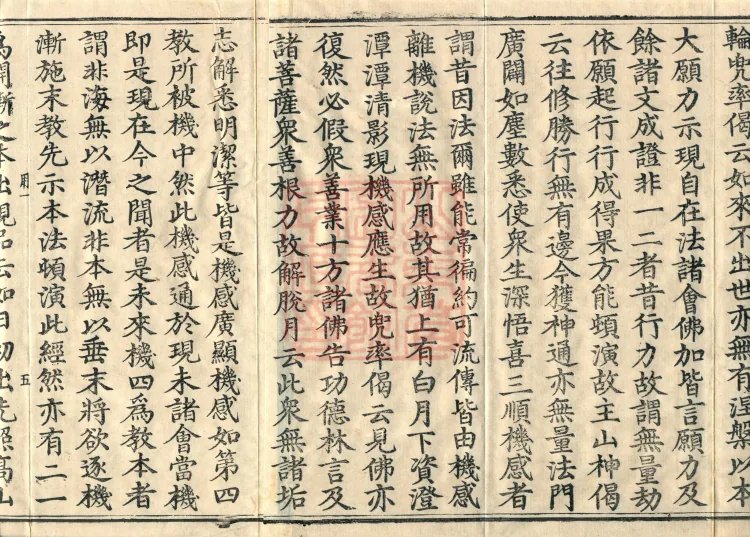 輪兜率偈云如來不出世亦無有涅槃以本
大願力示現自在法諸會佛加皆言願力及
餘諸文成證非一二者昔行力故謂無量劫
依願起行行成得果方能頓演故主山神偈
云往修勝行無有邊今獲神通亦無量法門
廣闢如塵數悉使衆生深悟喜三順機感者
謂昔因法爾雖能常徧約可流傳皆由機感
離機說法無所用故其猶上有白月下資澄
潭潭清影現機感應生故兜率偈云見佛亦
復然必假衆善業十方諸佛告功德林言及
諸菩薩衆善根力故解脫月云此衆無諸垢
志解悉明潔等皆是機感廣顯機感如第四
教所被機中然此機感通於現未諸會當機
即是現在今之聞者是未來機四爲教本者
謂非海無以潛流非本無以垂末將欲逐機
漸施末教先示本法頓演此經然亦有二一
用一 五
爲開漸之本出現品云如日初出先照高山